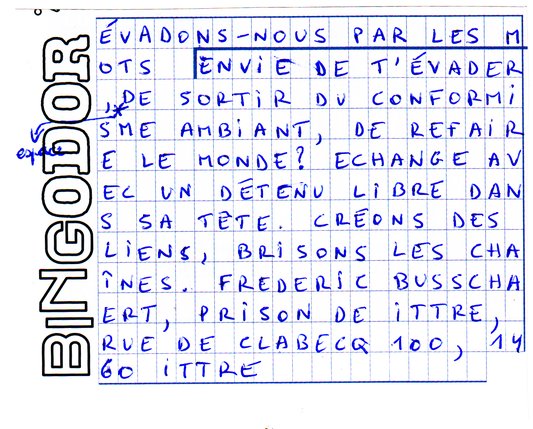 ÉVADONS-NOUS PAR LES M
OTS ENViE DE T'ÉVADER
, DE SORTiR DU CONFORMi
SME AMBiANT, DE REFAiR
E LE MONDE? ECHANGE AV
EC UN DÉTENU LiBRE DAN
S SA TÊTE. CRÉONS DES
LiENS, BRiSONS LES CHA
îNES. FREDERiC BUSSCHA
ERT, PRiSON DE iTTRE,
RUE DE CLABECQ 100, 14
60 iTTRE
espace
BINGODOR